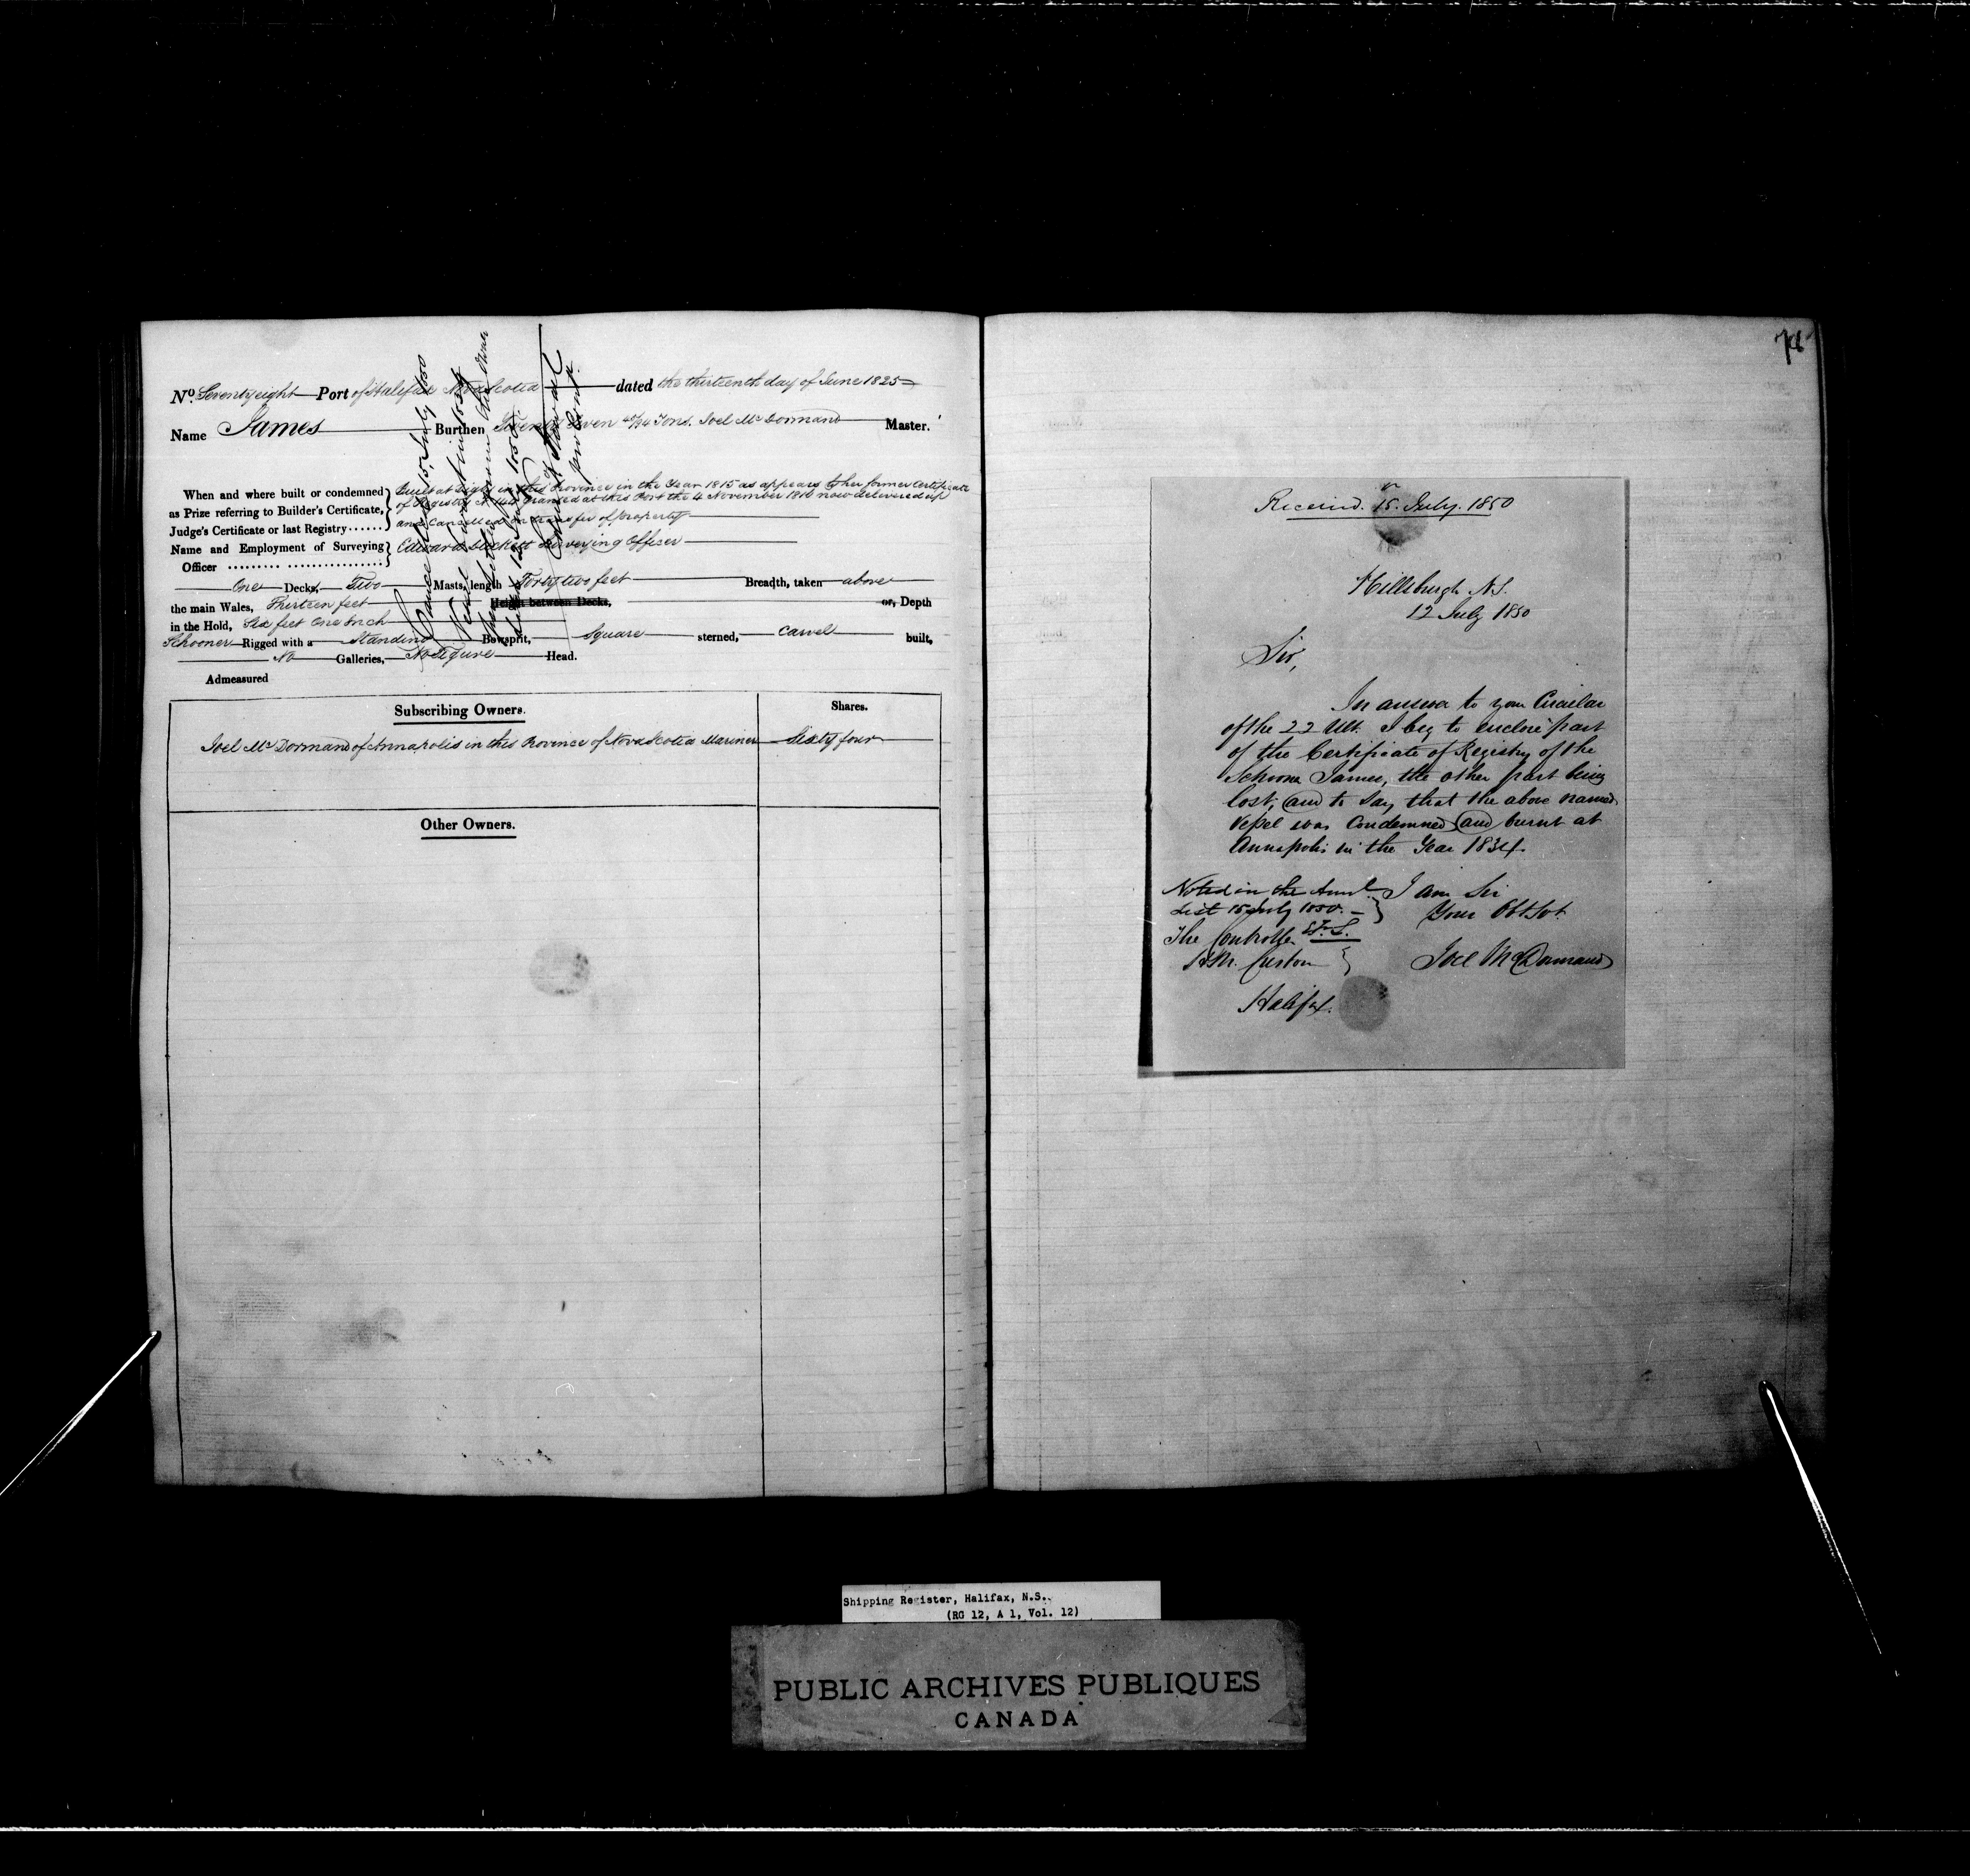 No. Seventy eight Port of Halifax Nova Scotia dated the thirteenth day of June 1825
Name James Burthen Twenty Seven Tons. Joel McDormand Master.
When and where built or condemned as Prize referring to Builder's Certificate, Judge's Certificate or last Registry......
Built at Digby in this Province in the Year 1815 as appears by her former Certificate
of Registry No granted at this Port the 4 November 1816 now delivered up
and Cancelled on transfer of property
Name and Employment of Surveying Officer
Edward Surveying Officer
One Decks, Two Masts, length Forty two feet Breadth, taken above
the main Wales, Thirteen feet Height between Decks, or, Depth
in the Hold, Six feet One Inch
Schooner Rigged with a Standing Bowsprit, Square sterned, Carvel built,
No Galleries, No Figure Head.
Admeasured
Subscribing Owners. Shares.
Joel McDormand of Annapolis in this Province of Nova Scotia Mariner Sixty four
Other Owners.
15 July 1850
78
Received. 15 July. 1850
Hillsburgh N.S.
12 July 1850
Sir,
In answer to your Circular
of the 22 Ult. I beg to enclose part
of the Certificate of Registry of the
Schooner James, the other part being
lost, and to say that the above named
Vessel was Condemned and burnt at
Annapolis in the Year 1834.
I am Sir
Your Obt Svt.
Joel McDormand
Noted in the Annl.
List 15 July 1850.
The Controller
H.M. Custom
Halifax.
Shipping Register, Halifax, N.S.
(RG 12, A 1, Vol. 12)
PUBLIC ARCHIVES PUBLIQUES
CANADA